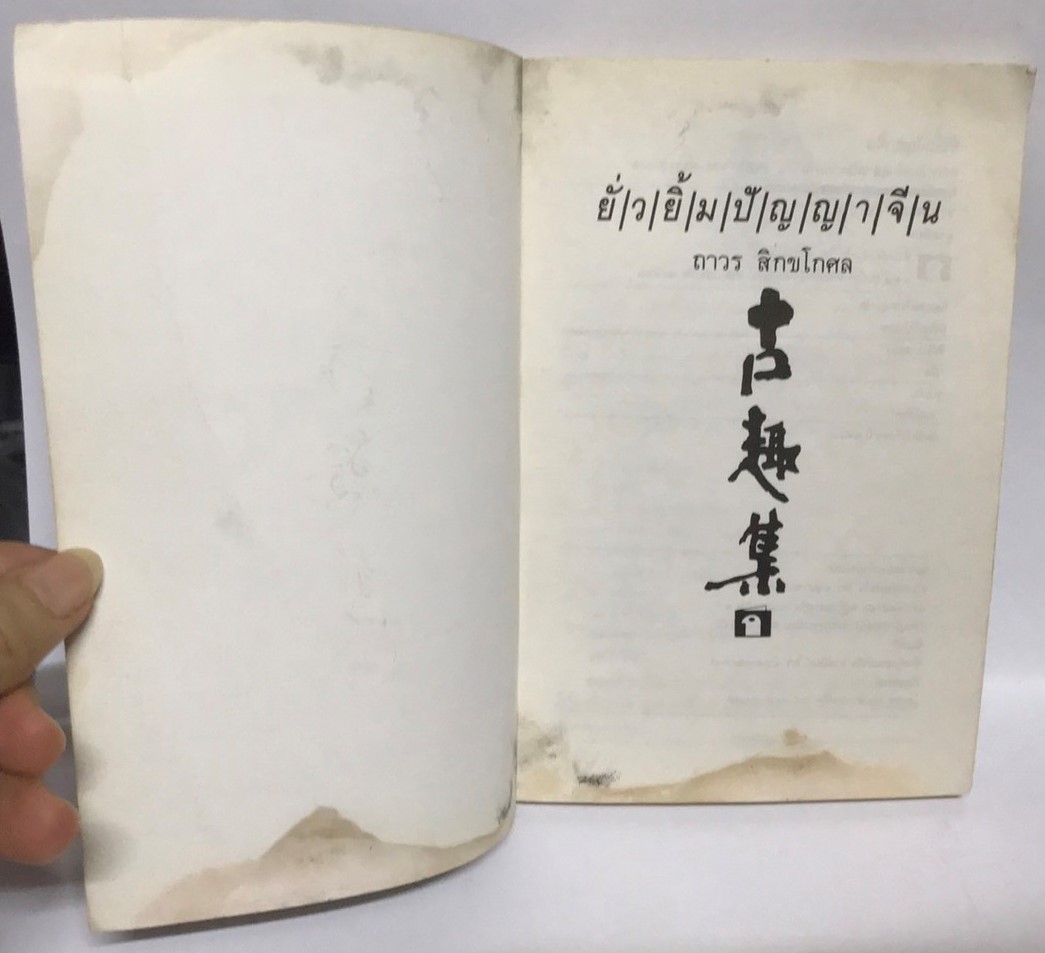 ยั่|ว|ยิ้|ม|ปั|ญ|ญ|า|จี|น
ถาวร สิกขโกศล
古
趣
集